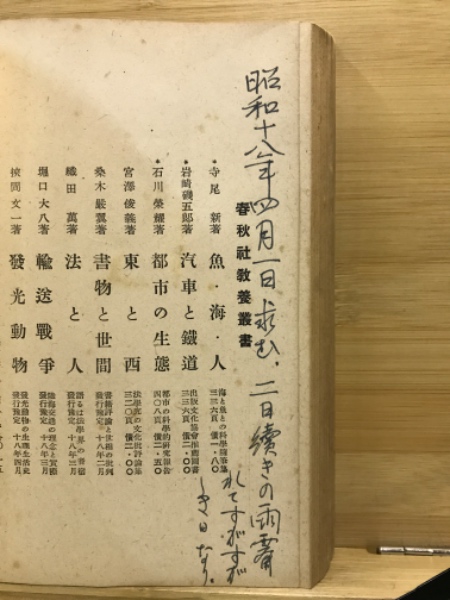 昭和十八年四月一日求む、二日続きの雨霽
れてすがすが
しき日なり。
春秋社敎養叢書
・寺尾 新著 魚・海・人 海と魚との科學隨筆集 三三六頁 價一・八〇
・岩崎磯五郞著 汽車と鐵道 出版文化協會推薦圖書 三三六頁 價二・〇〇
・石川榮耀著 都市の生態 都市の科學的研究報告 四〇八頁 價二・五〇
宮澤俊義著 東と西 法學者の文化批評論集 三二〇頁 價二・〇〇
桑木嚴翼著 書物と世間 書籍評論と世相の批判 發行豫定 十八年二月
織田 萬著 法と人 語るは法學界の耆宿 發行豫定 十八年三月
堀口大八著 輸送戰爭 陸海交通の理念と實際 發行豫定 十八年三月
挾間文一著 發光動物 發光動物の生理生活史 發行豫定 十八年四月